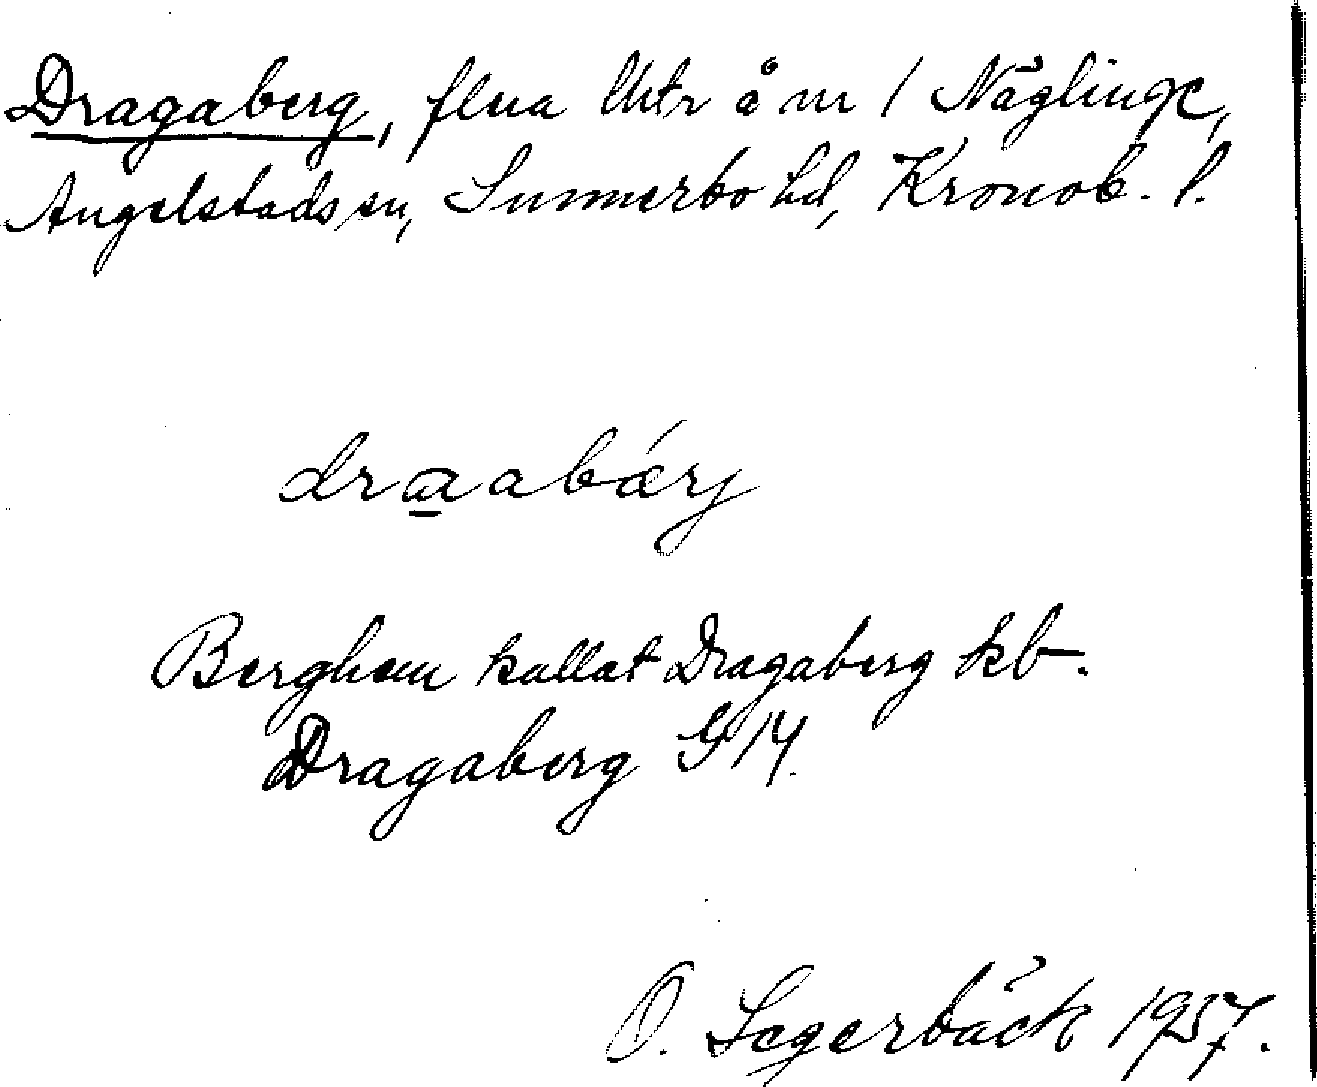 Dragaberg, flera lhtr å nr 1 Näglinge,
Angelstads sn, Sunnerbo hd, Kronob. l.
draabærj
Berghem kallat Dragaberg kb.
Dragaberg G 14.
O. Segerbäck 1957.